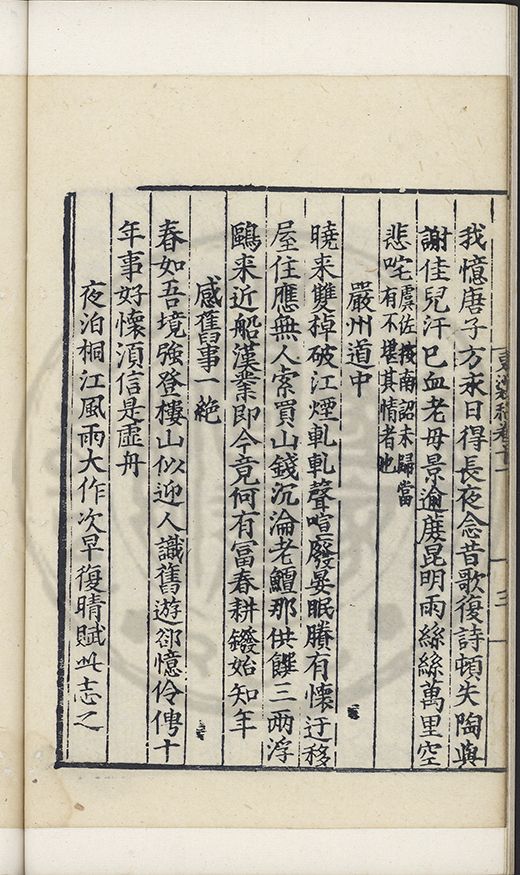 我憶唐子方永日得長夜念昔歌復詩頓失陶與
謝佳兒汗已血老母景逾蔗昆明雨絲絲萬里空
悲咤虞佐按南詔未歸當有不堪其情者也
嚴州道中
曉来雙棹破江煙軋軋聲喧廢晏眠賸有懷迂移
屋住應無人索買山錢沉淪老鱣那供饌三兩浮
鷗来近船漢業即今竟何有冨春耕鏺始知年
感舊事一絶
春如吾境強登樓山似迎人識舊遊郤憶伶俜十
年事好懷湏信是虛舟
夜泊桐江風雨大作次早復晴賦此志之